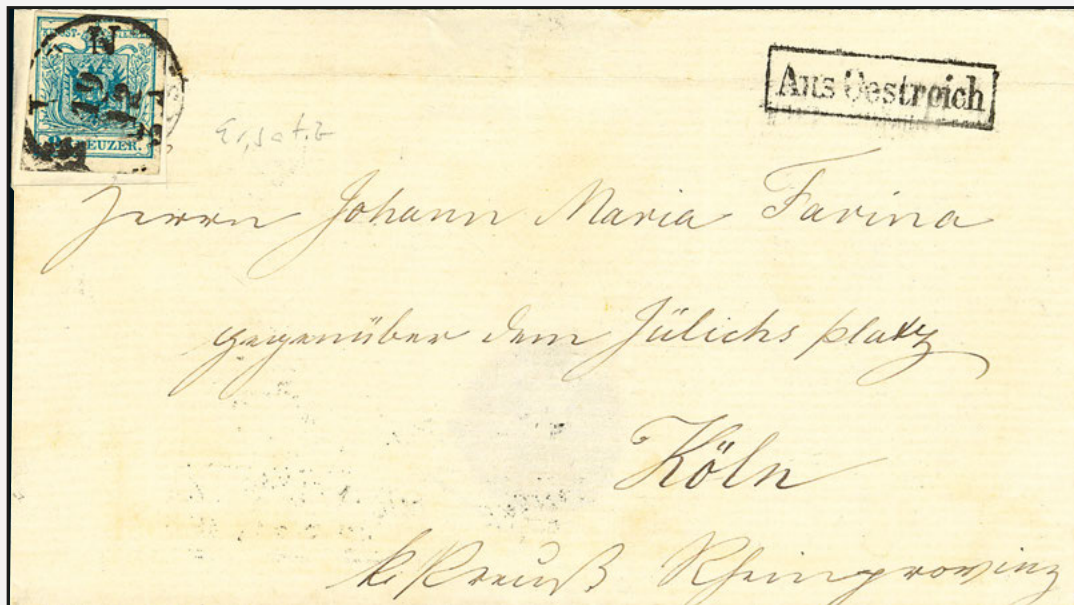 N
19
12
KREUZER.
Aus Oestreich
Herrn Johann Maria Farina
gegenüber dem Jülichs platz
Köln
k. Preuß Rheinprovinz